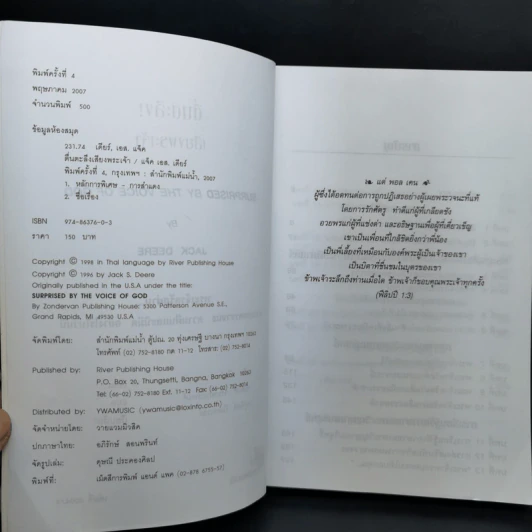 พิมพ์ครั้งที่ 4
พฤษภาคม 2007
จำนวนพิมพ์ 500
ข้อมูลห้องสมุด
231.74 เดียร์, เอส. แจ็ค
ตื่นตะลึงเสียงพระเจ้า / แจ็ค เอส. เดียร์
พิมพ์ครั้งที่ 4, กรุงเทพฯ : สำนักพิมพ์แม่น้ำ, 2007
1. หลักการพิเศษ - การสำแดง
2. ชื่อเรื่อง
ISBN 974-86376-0-3
ราคา 150 บาท
Copyright © 1998 in Thai language by River Publishing House
Copyright © 1996 by Jack S. Deere
Originally published in the U.S.A under the title:
SURPRISED BY THE VOICE OF GOD
By Zondervan Publishing House: 5300 Patterson Avenue S.E.,
Grand Rapids, MI 49530 U.S.A
จัดพิมพ์โดย: สำนักพิมพ์แม่น้ำ ตู้ปณ. 20 ทุ่งเศรษฐี บางนา กรุงเทพฯ 10263
โทรศัพท์ (02) 752-8180 กด 11-12 โทรสาร: (02) 752-8074
Published by: River Publishing House
P.O. Box 20, Thungsetti, Bangna, Bangkok 10263
Tel: (66-02) 752-8180 Ext. 11-12 Fax: (66-02) 752-8074
Distributed by: YWAMUSIC (ywamusic@loxinfo.co.th)
จัดจำหน่ายโดย: วายแวมมิวสิค
ปกภาษาไทย: อภิรักษ์ สอนพรินท์
จัดรูปเล่ม: ดุษณี ประคองศิลป
พิมพ์ที่: แอนด์ แพค (02-878 6753-57)
แด่ พอล เคน
ผู้ซึ่งได้อดทนต่อการถูกปฏิเสธอย่างผู้เผยพระวจนะที่แท้
โดยการรักศัตรู ทำดีแก่ผู้ที่เกลียดชัง
อวยพรแก่ผู้ที่แช่งด่า และอธิษฐานเพื่อผู้ที่เคี่ยวเข็ญ
เขาเป็นเพื่อนที่ใกล้ชิดยิ่งกว่าพี่น้อง
เป็นพี่เลี้ยงที่เหมือนกับองค์พระผู้เป็นเจ้าของเขา
เป็นบิดาที่ชื่นชมในบุตรของเขา
ข้าพเจ้าระลึกถึงท่านเมื่อใด ข้าพเจ้าก็ขอบคุณพระเจ้าทุกครั้ง
(ฟิลิปปี 1:3)